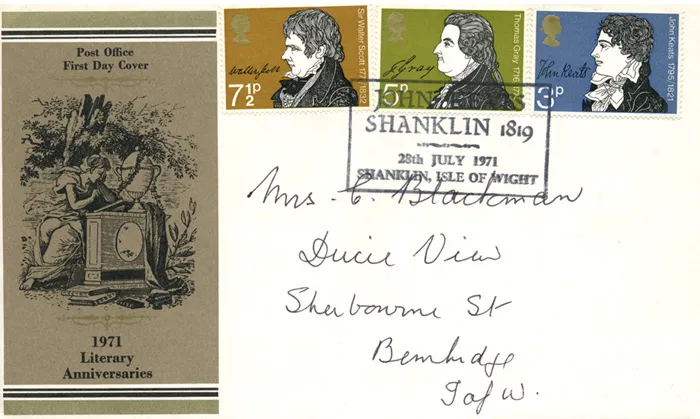 Post Office
First Day Cover
1971
Literary
Anniversaries
Sir Walter Scott 1771-1832
Walter Scott
7½P
Thomas Gray 1716-1771
T Gray
5P
John Keats 1795-1821
John Keats
3P
JOHN KEATS
SHANKLIN 1819
28th JULY 1971
SHANKLIN, ISLE OF WIGHT
Mrs. C. Blackman
Ducie View
Sherbourne St
Bembridge
I of W.